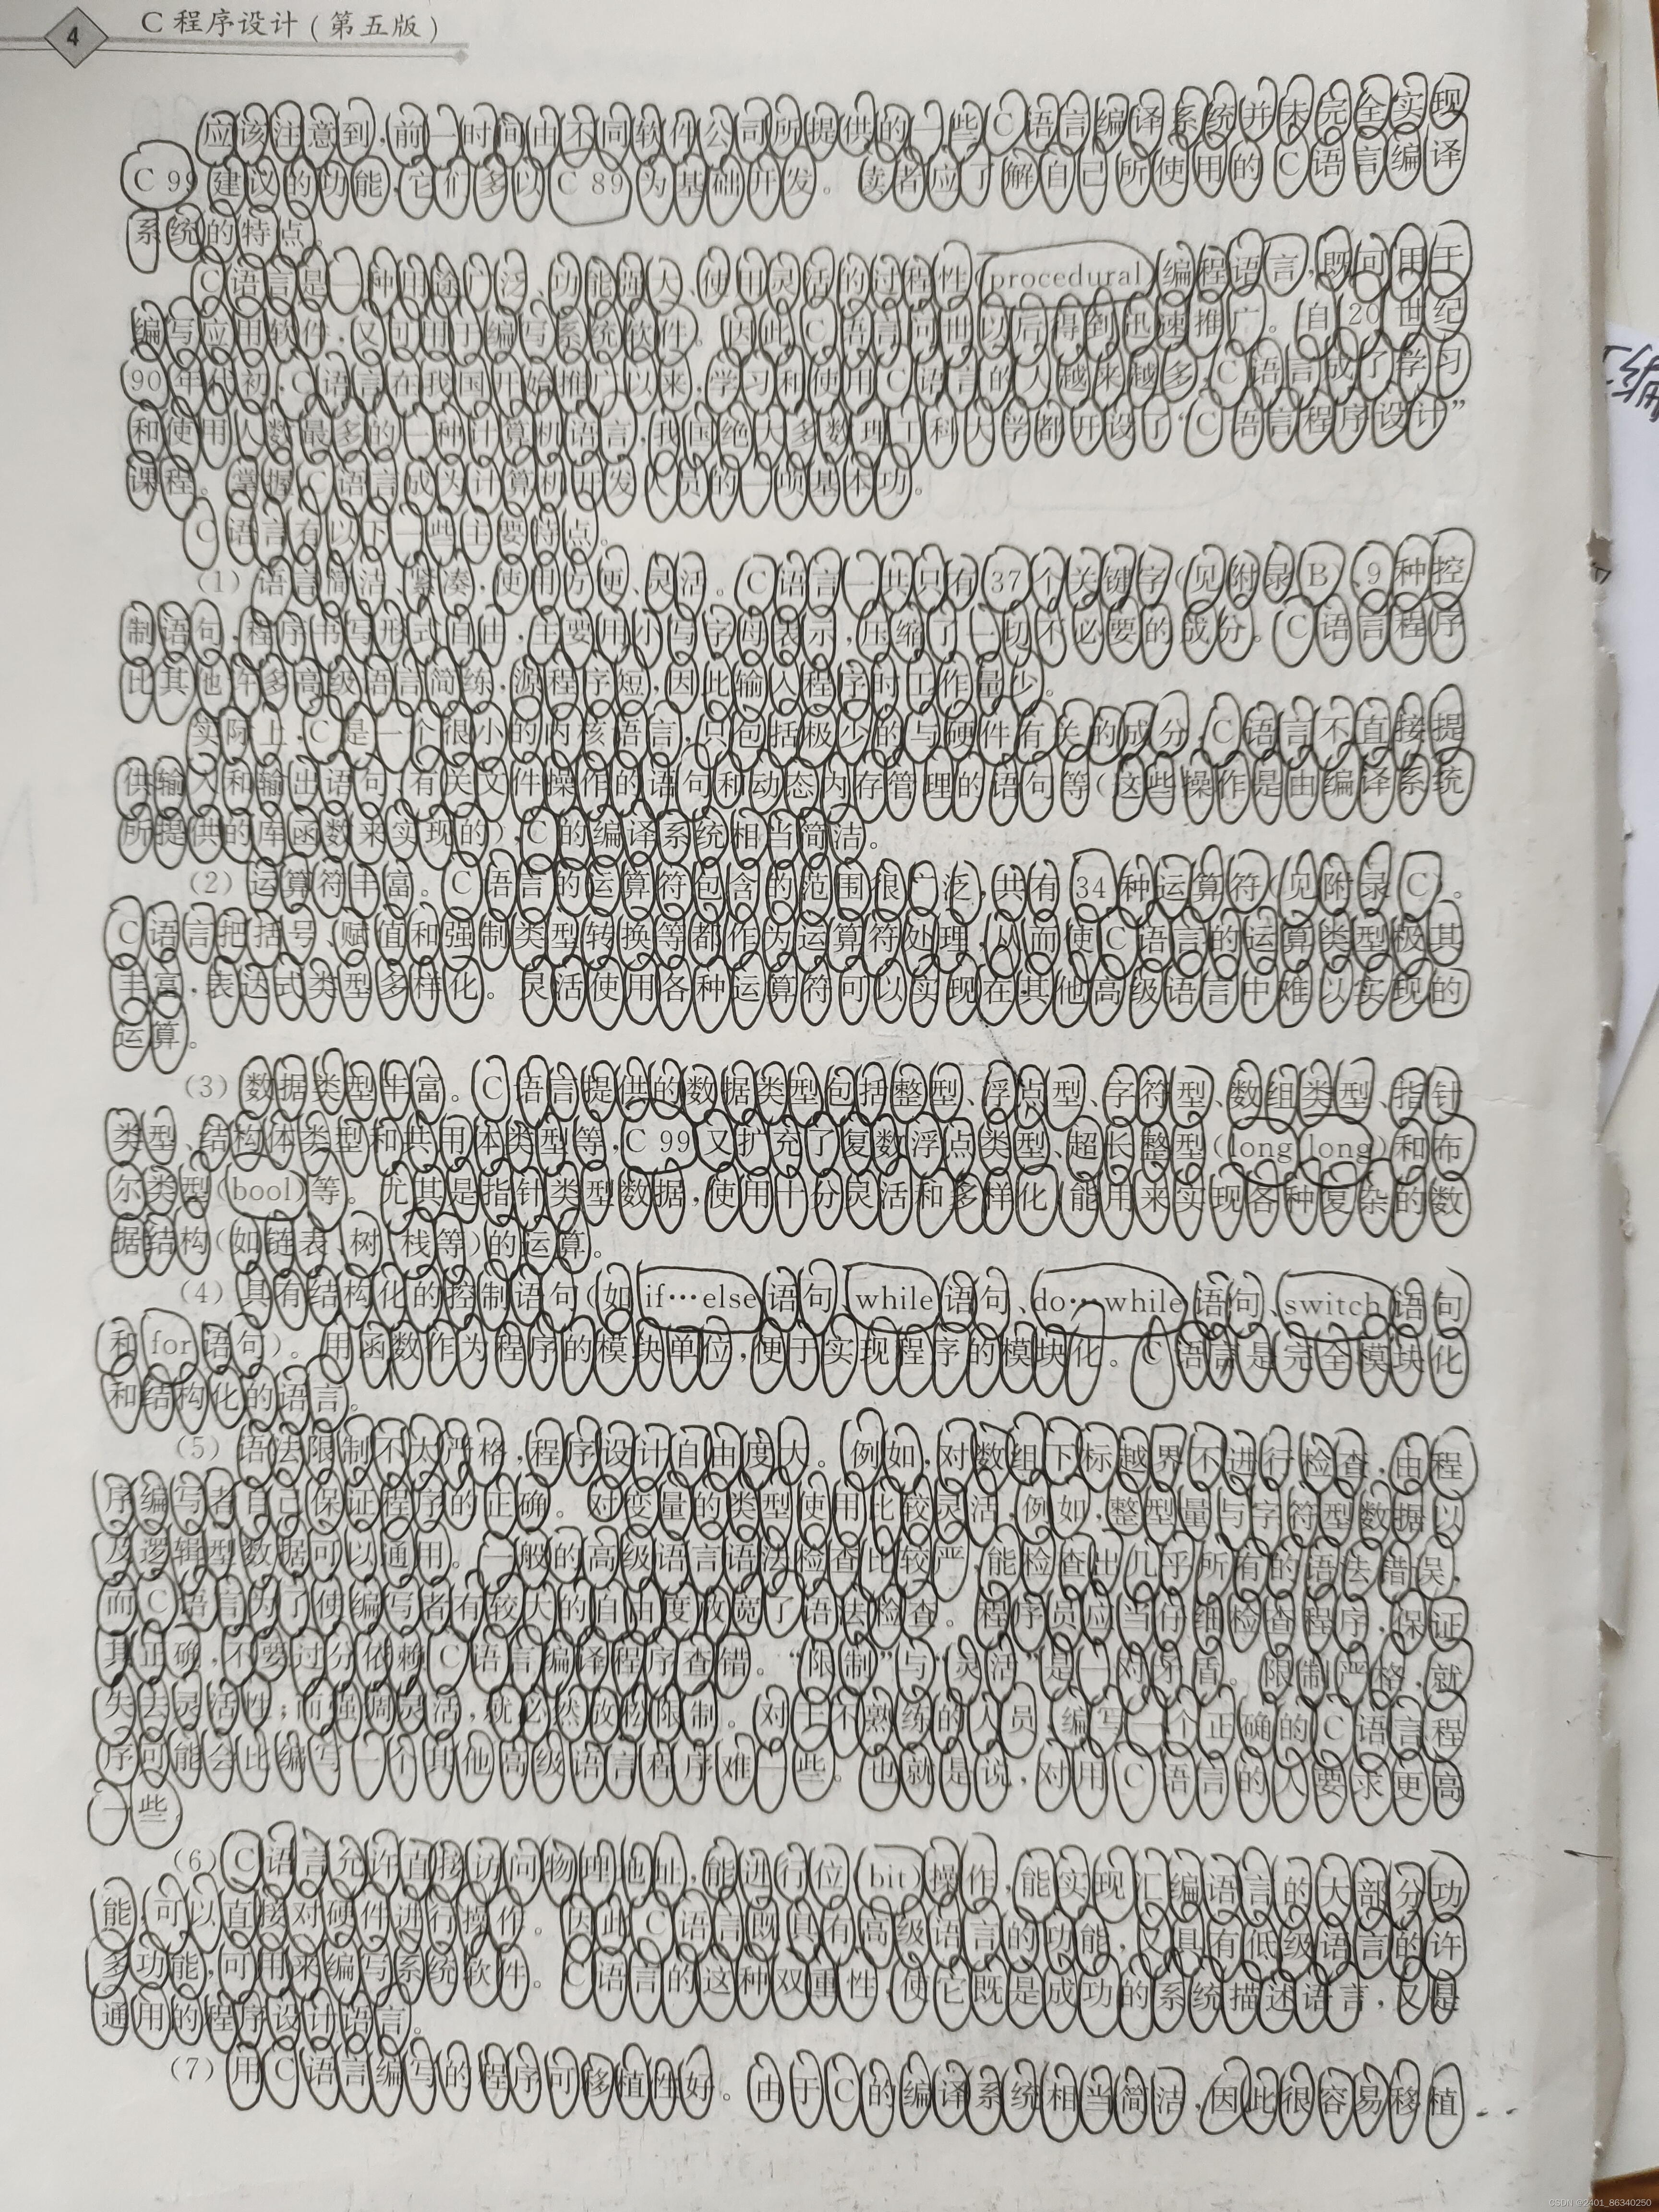 4
C 程序设计(第五版)
应该注意到,前一时间由不同软件公司所提供的一些 C 语言编译系统并未完全实现
C 99 建议的功能,它们多以 C 89 为基础开发。读者应了解自己所使用的 C 语言编译
系统的特点。
C 语言是一种用途广泛、功能强大、使用灵活的过程性(procedural)编程语言,既可用于
编写应用软件,又可用于编写系统软件。因此 C 语言问世以后得到迅速推广。自 20 世纪
90 年代初,C 语言在我国开始推广以来,学习和使用 C 语言的人越来越多,C 语言成了学习
和使用人数最多的一种计算机语言,我国绝大多数理工科大学都开设了“C 语言程序设计”
课程。掌握 C 语言成为计算机开发人员的一项基本功。
C 语言有以下一些主要特点。
(1) 语言简洁、紧凑,使用方便、灵活。C 语言一共只有 37 个关键字(见附录 B)、9 种控
制语句,程序书写形式自由,主要用小写字母表示,压缩了一切不必要的成分。C 语言程序
比其他许多高级语言简练,源程序短,因此输入程序时工作量少。
实际上,C 是一个很小的内核语言,只包括极少的与硬件有关的成分,C 语言不直接提
供输入和输出语句、有关文件操作的语句和动态内存管理的语句等(这些操作是由编译系统
所提供的库函数来实现的),C 的编译系统相当简洁。
(2) 运算符丰富。C 语言的运算符包含的范围很广泛,共有 34 种运算符(见附录 C)。
C 语言把括号、赋值和强制类型转换等都作为运算符处理,从而使 C 语言的运算类型极其
丰富,表达式类型多样化。灵活使用各种运算符可以实现在其他高级语言中难以实现的
运算。
(3) 数据类型丰富。C 语言提供的数据类型包括整型、浮点型、字符型、数组类型、指针
类型、结构体类型和共用体类型等,C 99 又扩充了复数浮点类型、超长整型(long long)和布
尔类型(bool)等。尤其是指针类型数据,使用十分灵活和多样化,能用来实现各种复杂的数
据结构(如链表、树、栈等)的运算。
(4) 具有结构化的控制语句(如 if…else 语句、while 语句、do…while 语句、switch 语句
和 for 语句)。用函数作为程序的模块单位,便于实现程序的模块化。C 语言是完全模块化
和结构化的语言。
(5) 语法限制不太严格,程序设计自由度大。例如,对数组下标越界不进行检查,由程
序编写者自己保证程序的正确。对变量的类型使用比较灵活,例如,整型量与字符型数据以
及逻辑型数据可以通用。一般的高级语言语法检查比较严,能检查出几乎所有的语法错误,
而 C 语言为了使编写者有较大的自由度放宽了语法检查。程序员应当仔细检查程序,保证
其正确,不要过分依赖 C 语言编译程序查错。“限制”与“灵活”是一对矛盾。限制严格,就
失去灵活性;而强调灵活,就必然放松限制。对于不熟练的人员,编写一个正确的 C 语言程
序可能会比编写一个其他高级语言程序难一些。也就是说,对用 C 语言的人要求更高
一些。
(6) C 语言允许直接访问物理地址,能进行位(bit)操作,能实现汇编语言的大部分功
能,可以直接对硬件进行操作。因此 C 语言既具有高级语言的功能,又具有低级语言的许
多功能,可用来编写系统软件。C 语言的这种双重性,使它既是成功的系统描述语言,又是
通用的程序设计语言。
(7) 用 C 语言编写的程序可移植性好。由于 C 的编译系统相当简洁,因此很容易移植
CSDN @2401_86340250